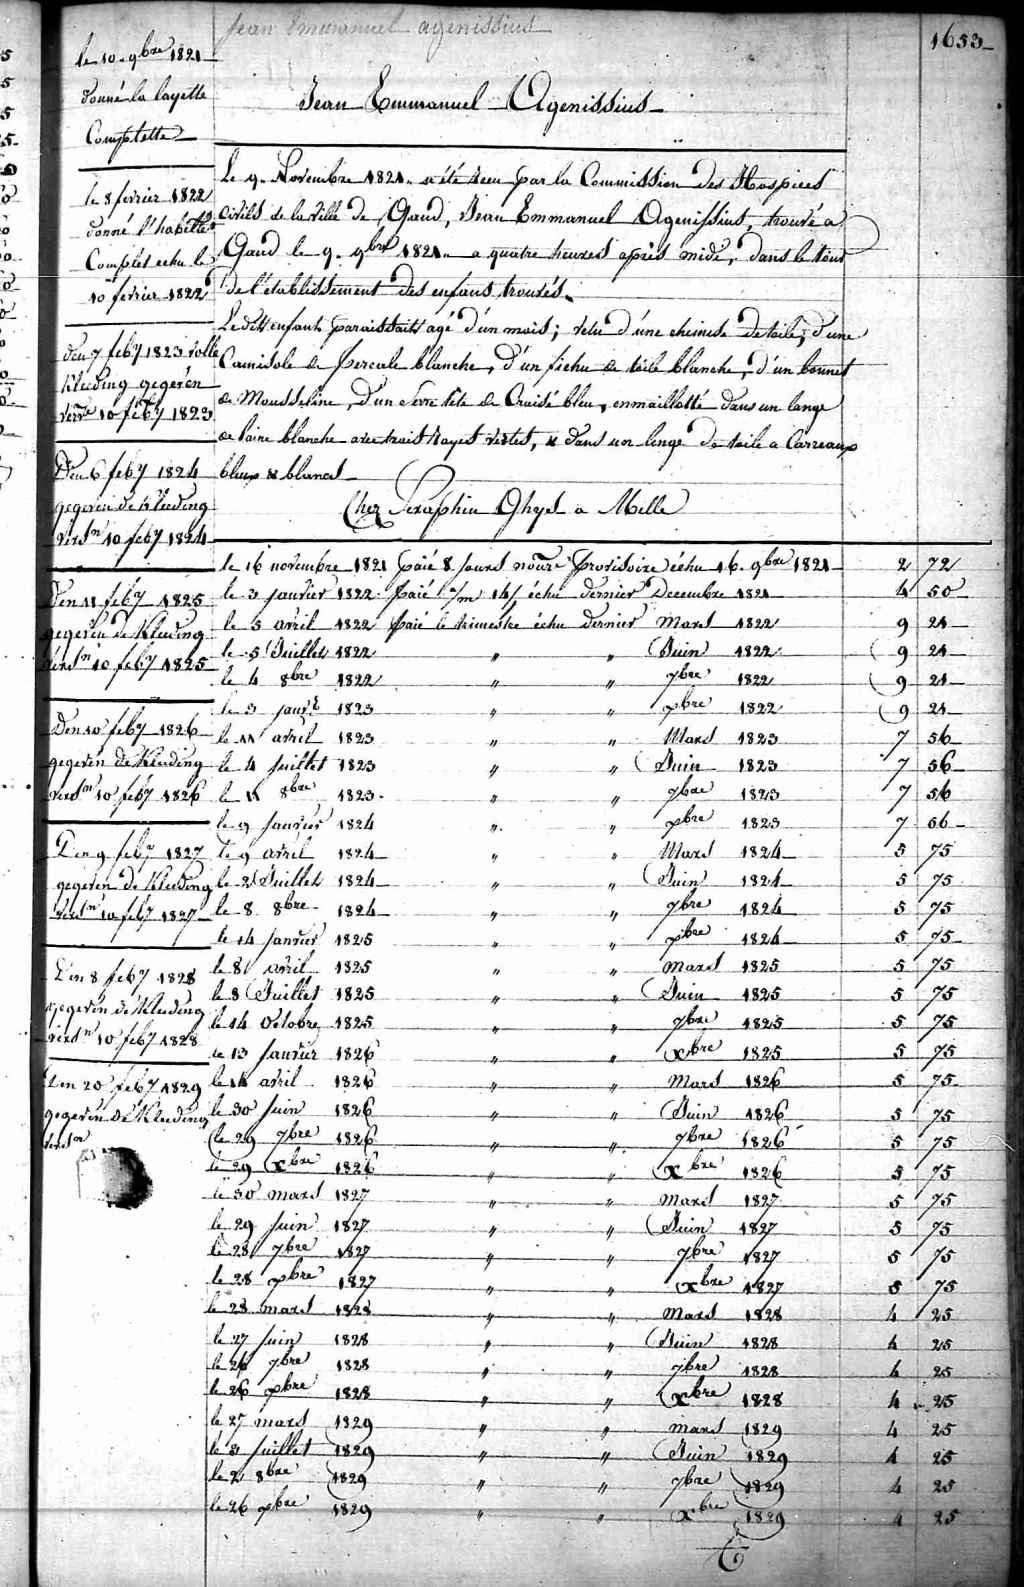 Jean Emmanuel agenissius
1653
le 10 9bre 1821
donné la layette
Complette
le 8 fevrier 1822
donné l'habillt
Complet echu le
10 fevrier 1822
den 7 feby 1823 volle
kleeding gegeven
10 feby 1823
Den 6 feby 1824
gegeven de Kleeding
versn 10 feby 1824
Den 11 feby 1825
gegeven de Kleeding
versn 10 feby 1825
Den 10 feby 1826
gegeven de Kleeding
versn 10 feby 1826
Den 9 feby 1827
gegeven de Kleeding
versn 10 feby 1827
Den 8 feby 1828
gegeven de Kleeding
versn 10 feby 1828
Den 20 feby 1829
gegeven de Kleeding
versn
Jean Emmanuel Agenissius
Le 9 Novembre 1821 a été recu par la Commission des Hospices
civils de la ville de Gand, Jean Emmanuel Agenissius, trouvé a
Gand le 9 9bre 1821 a quatre heures après midi, dans le tour
de l'établissement des enfans trouvés.
Le dit enfant paraissait agé d'un mois; vetu d'une chemise de toile, d'une
Camisole de percale blanche, d'un fichu de toile blanche, d'un bonnet
de Mousseline, d'un serre tête de Croisé bleu, enmaillotté dans un lange
de laine blanche avec trait Rayes vertes, & dans un linge de toile a Carreaux
bleus & blancs
Chez Seraphin Ghys a Melle
le 16 novembre 1821 paié 8 Jours nourre Provisoire échu 16 9bre 1821 2 72
le 3 janvier 1822 paié 1/m 14/ échu dernier Decembre 1821 4 50
le 5 avril 1822 paié le trimestre échu dernier Mars 1822 9 21
le 5 Juillet 1822 " " Juin 1822 9 21
le 4 8bre 1822 " " 7bre 1822 9 21
le 3 janvr 1823 " " xbre 1822 9 21
le 11 avril 1823 " " Mars 1823 7 56
le 4 juillet 1823 " " Juin 1823 7 56
le 11 8bre 1823 " " 7bre 1823 7 56
le 9 Janvier 1824 " " xbre 1823 7 56
le 9 avril 1824 " " Mars 1824 5 75
le 2 Juillet 1824 " " Juin 1824 5 75
le 8 8bre 1824 " " 7bre 1824 5 75
le 14 janvier 1825 " " xbre 1824 5 75
le 8 avril 1825 " " mars 1825 5 75
le 8 Juillet 1825 " " Juin 1825 5 75
le 14 Octobre 1825 " " 7bre 1825 5 75
le 13 Janvier 1826 " " xbre 1825 5 75
le 14 avril 1826 " " Mars 1826 5 75
le 30 Juin 1826 " " Juin 1826 5 75
le 29 7bre 1826 " " 7bre 1826 5 75
le 29 xbre 1826 " " xbre 1826 5 75
le 30 mars 1827 " " Mars 1827 5 75
le 29 Juin 1827 " " Juin 1827 5 75
le 28 7bre 1827 " " 7bre 1827 5 75
le 28 xbre 1827 " " xbre 1827 5 75
le 28 mars 1828 " " Mars 1828 4 25
le 27 Juin 1828 " " Juin 1828 4 25
le 26 7bre 1828 " " 7bre 1828 4 25
le 26 xbre 1828 " " xbre 1828 4 25
le 27 mars 1829 " " mars 1829 4 25
le 3 Juillet 1829 " " Juin 1829 4 25
le 2 8bre 1829 " " 7bre 1829 4 25
le 26 xbre 1829 " " xbre 1829 4 25